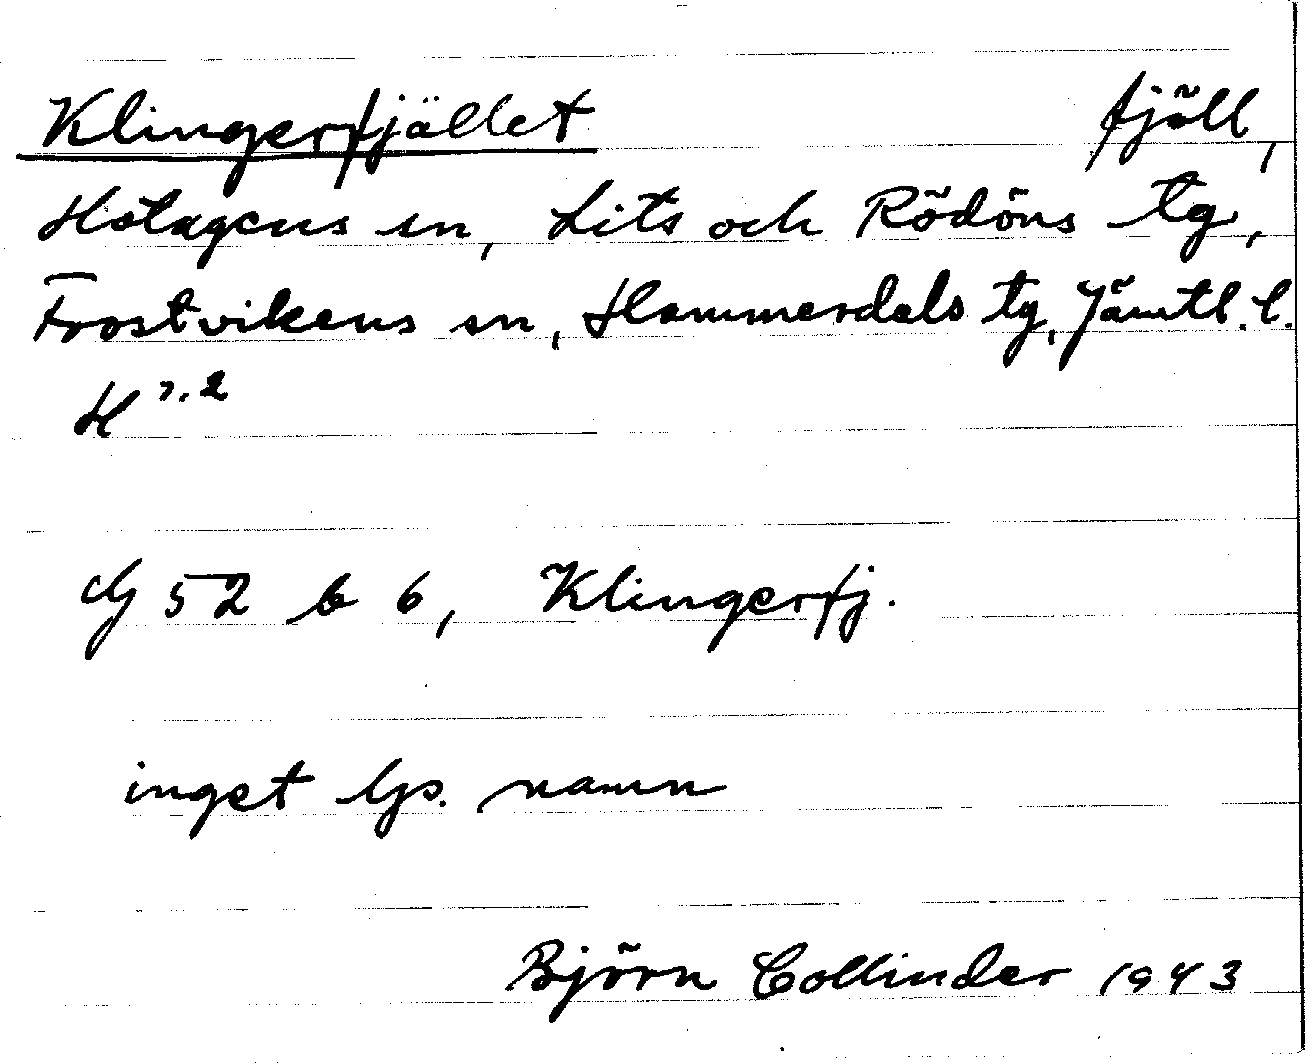 Klingerfjället fjäll,
Hotagens sn, Lits och Rödöns tg,
Frostvikens sn, Hammerdals tg, Jämtl. l.
52 b 6, Klingerfj.
inget lps. namn
Björn Collinder 1943